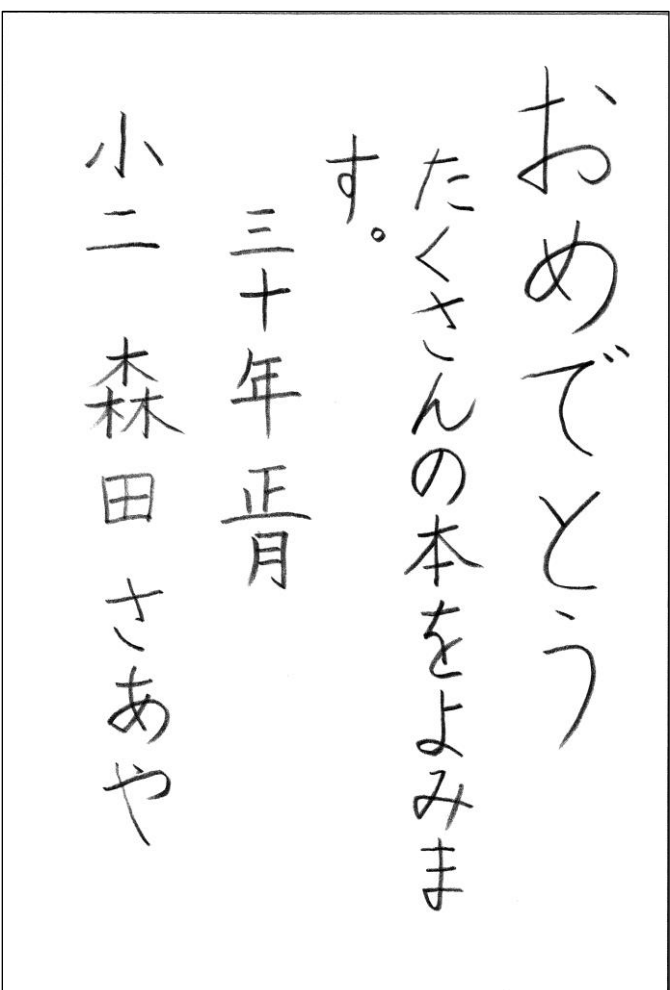 おめでとう
たくさんの本をよみま
す。
三十年正月
小二 森田さあや